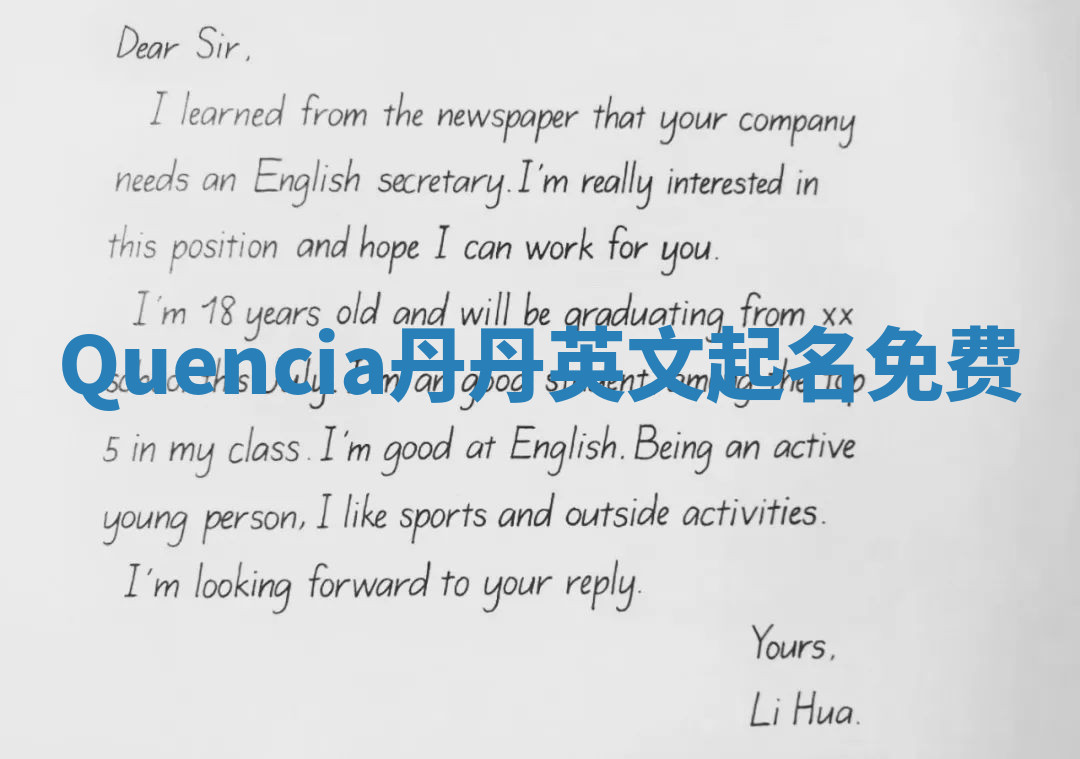 Dear Sir,
I learned from the newspaper that your company
needs an English secretary. I'm really interested in
this position and hope I can work for you.
I'm 18 years old and will be graduating from xx
Quencia丹丹英文起名免费
school this July. I'm an good student among the top
5 in my class. I'm good at English. Being an active
young person, I like sports and outside activities.
I'm looking forward to your reply.
Yours,
Li Hua.